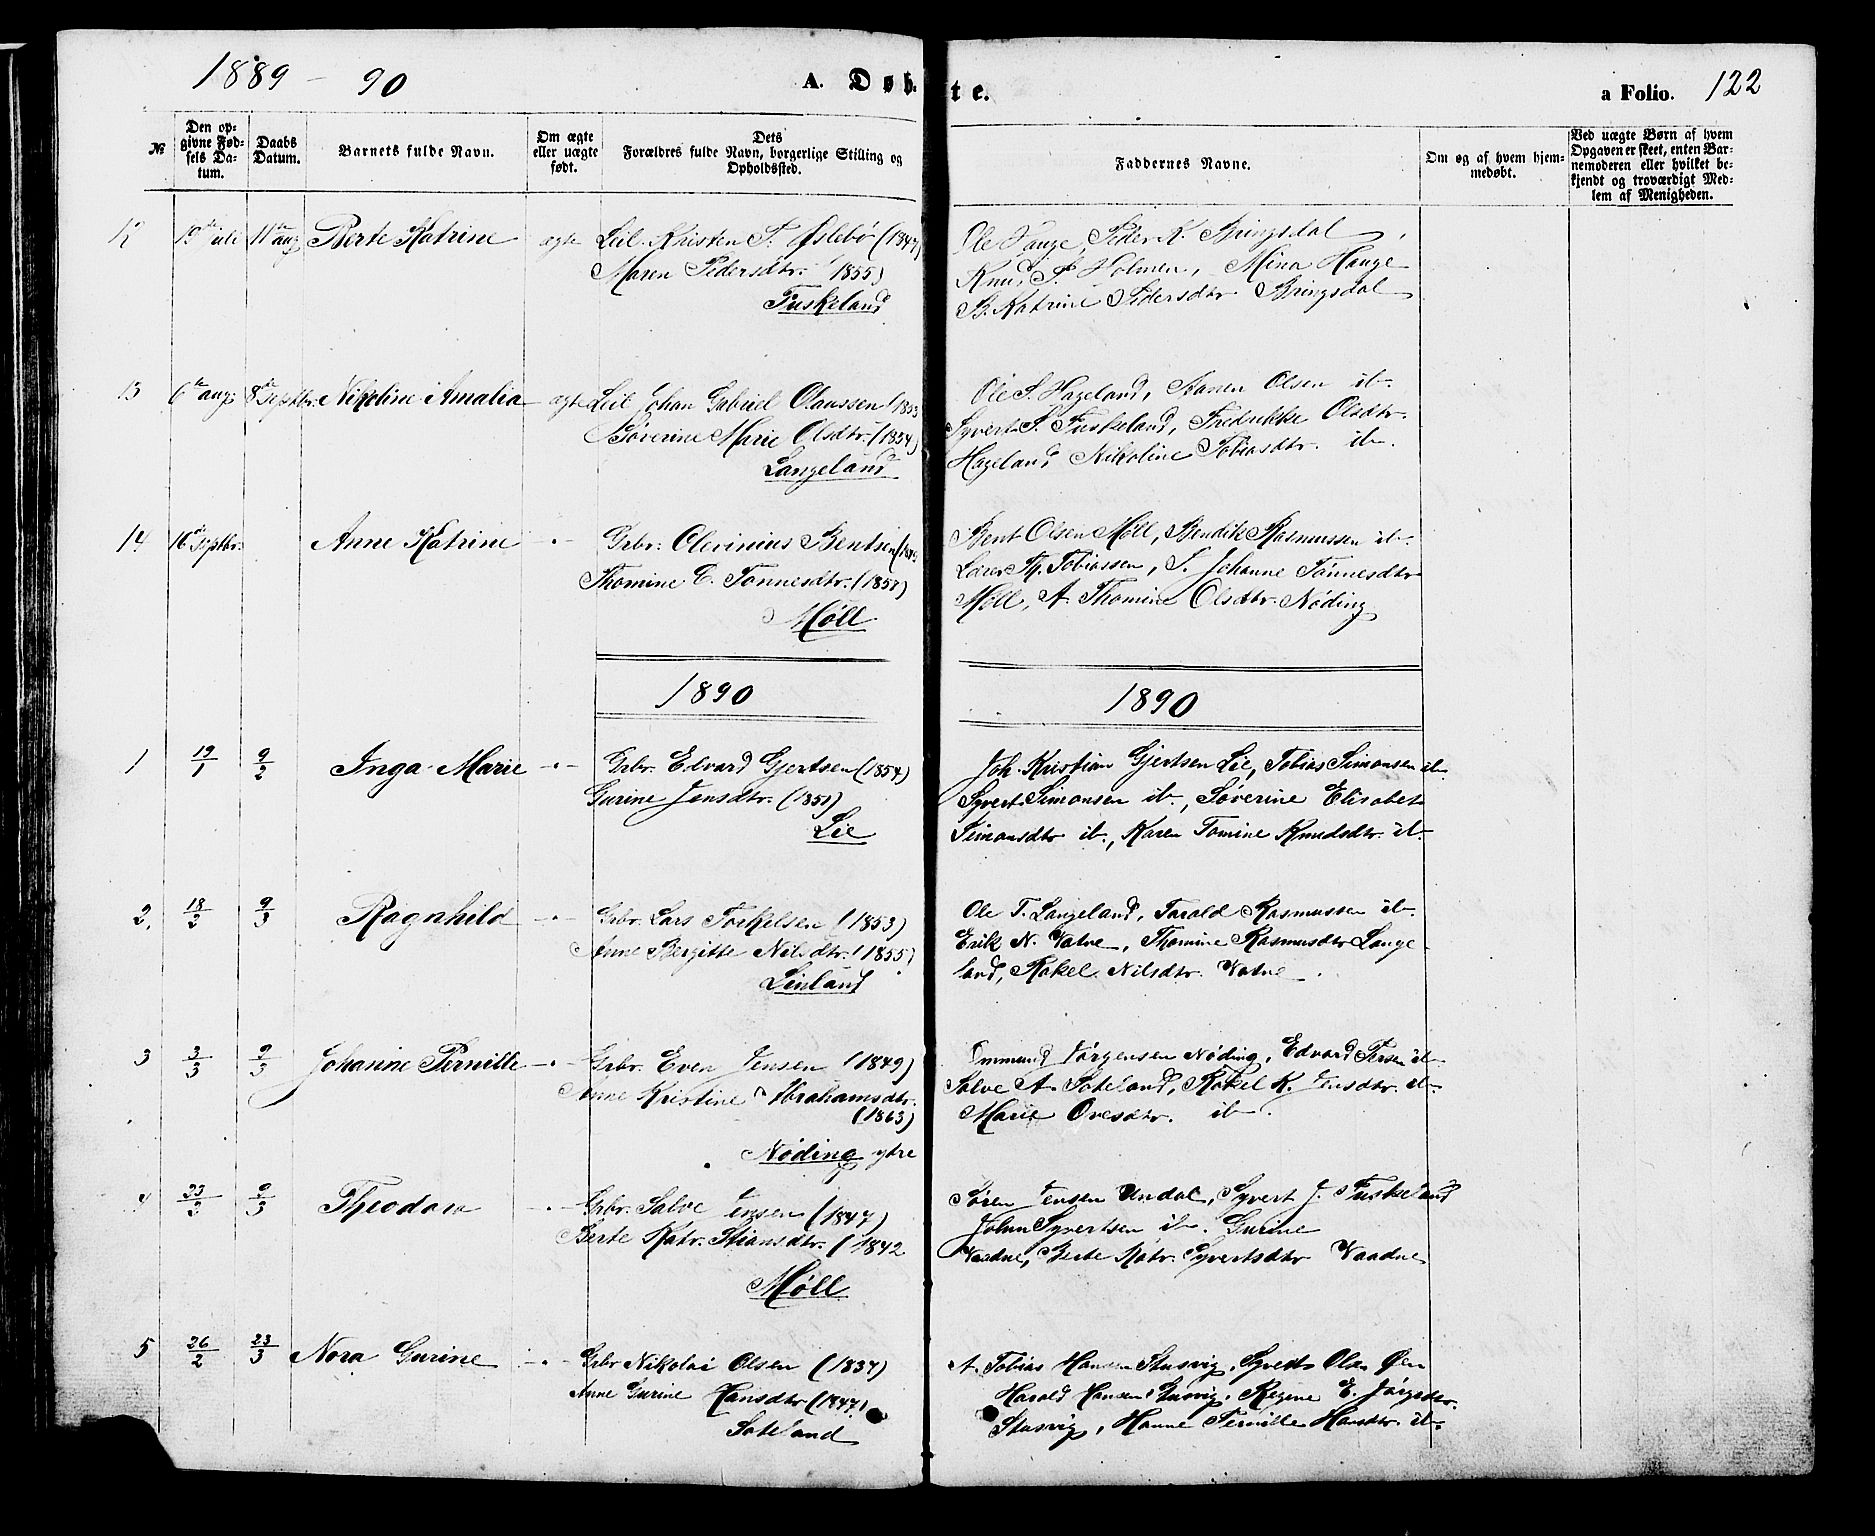 1889 - 90
A. Døbte.
a Folio. 122
№
Den opgivne Fødsels Datum.
Daabs Datum.
Barnets fulde Navn.
Om ægte eller uægte født.
Dets Forældres fulde Navn, borgerlige Stilling og Opholdssted.
Faddernes Navne.
Om og af hvem hjemmedøbt.
Ved uægte Børn af hvem Opgaven er skeet, enten Barnemoderen eller hvilket bekjendt og troværdigt Medlem af Menigheden.
12 11te aug Berte Katrine ægte Leil. Kristen T. Øslebø (1847) Ole Hauge, Peder K. Bringsdal,
Maren Pedersdtr. (1855) Knud P. Holmen, Mina Hauge
Fuskeland B. Katrine Pedersdtr Bringsdal
13 6te aug. 8de Septbr. Nikoline Amalia ægte Leil. Johan Gabriel Olaussen (1853 Ole S. Hageland, Aanen Olsen ib.
Søverine Marie Olsdtr. (1854) Syvert S. Fuskeland, Fredrikke Olsdtr.
Langeland Hageland Nikoline Tobiasdtr. ib.
14 16de Septbr. Anne Katrine -"- Grbr. Olevinius Bentsen Bent Olsen Møll, Bendik Rasmussen ib.
Thomine E. Tønnesdtr. (1857) Lærer Th. Tobiassen, T. Johanne Tønnesdtr
Møll Møll, A. Thomine Olsdtr Nøding
1890 1890
1 19/1 9/2 Inga Marie -"- Grbr. Edvard Gjertsen (1854) Joh. Kristian Gjertsen Lie, Tobias Simonsen ib.
Gurine Jensdtr. (1851) Syvert Simonsen ib., Søverine Elisabet
Lie Simonsdtr ib., Karen Tomine Knudsdtr. ib.
2. 18/2 9/3 Ragnhild -"- Grbr. Lars Torkelsen (1853) Ole T. Langeland, Tarald Rasmussen ib.
Anne Bergitte Nilsdtr. (1855) Erik N. Vatne, Thomine Rasmusdtr Lange-
Linland land, Rakel Nilsdtr. Vatne.
3 3/3 9/3 Johanne Pernille -"- Grbr. Even Jensen (1849) Ommund Jørgensen Nøding, Edvard Tersen ib.
Anne Kristine Abrahamsdtr. Salve A. Søteland, Rakel K. Jensdtr. ib.
(1863) Marie Ovesdtr. ib.
Nøding ytre
4 23/2 9/3 Theodora -"- Grbr. Salve Jensen (1847) Søren Jensen Undal, Syvert J. Fuskeland
Berte Katr. Stiansdtr. (1842 John Syvertsen ib. Gurine
Møll Vaadne, Berte Katr. Syvertsdtr Vaadne
5 26/2 23/3 Nora Gurine -"- Grbr Nikolai Olsen (1837) A. Tobias Hansen Stusvig, Syvert Olsn Øen
Anne Gurine Hansdtr (1847) Harald Hansen Stusvig, Regine E. Jørgsdtr.
Søteland Stusvig, Hanne Pernille Hansdtr. ib.